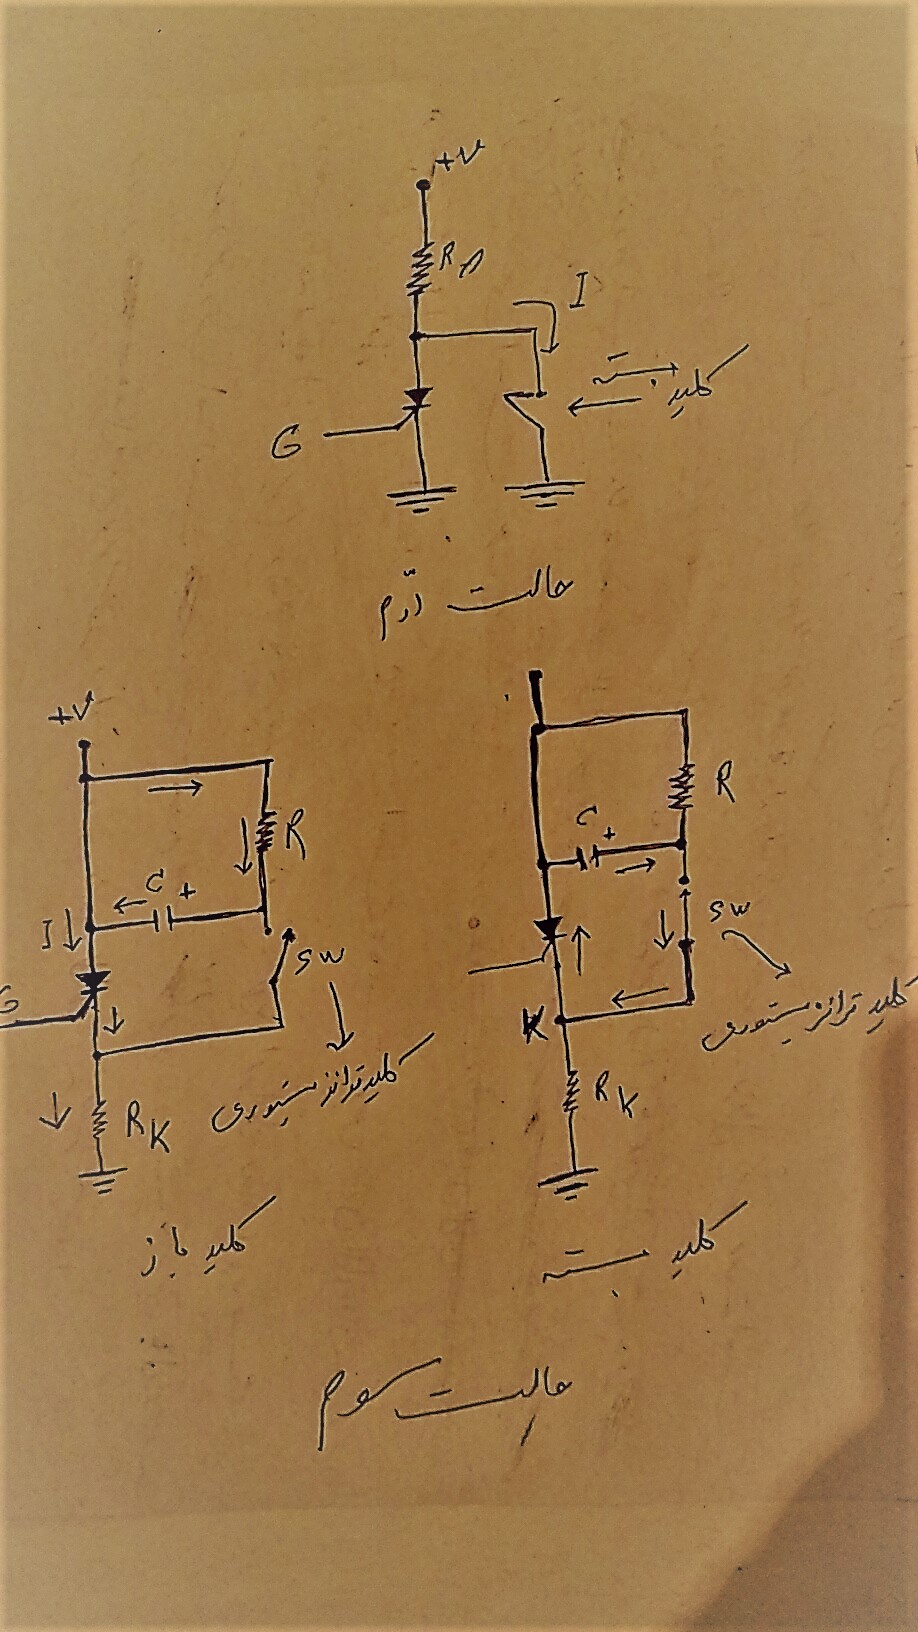 +V
R A
I
کلید بسته
G
حالت دوم
+V
R
C +
I
SW
G
کلید ترانزیستوری
R K
کلید باز
R
C +
SW
کلید ترانزیستوری
K
R K
کلید بسته
حالت سوم